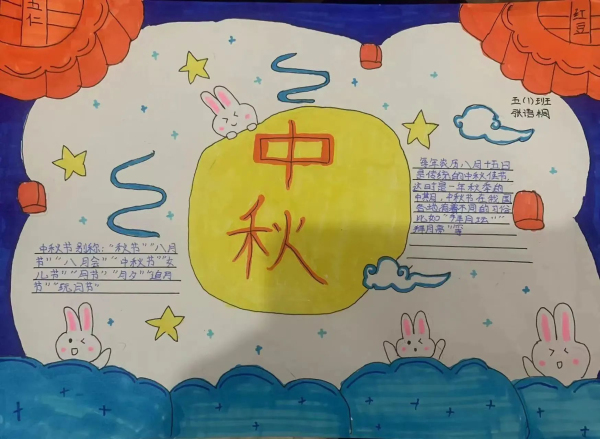 五仁
红豆
五(1)班
张语桐
中秋
每年农历八月十五日
是传统的中秋佳节
这时是一年秋季的
中期,中秋节在我国
各地有着不同的习俗
比如“拜月坛”“
拜月亭”等
中秋节别称:“秋节”“八月
节”“八月会”“中秋节”“女
儿节”“月节”“月夕”“追月
节”“玩月节”